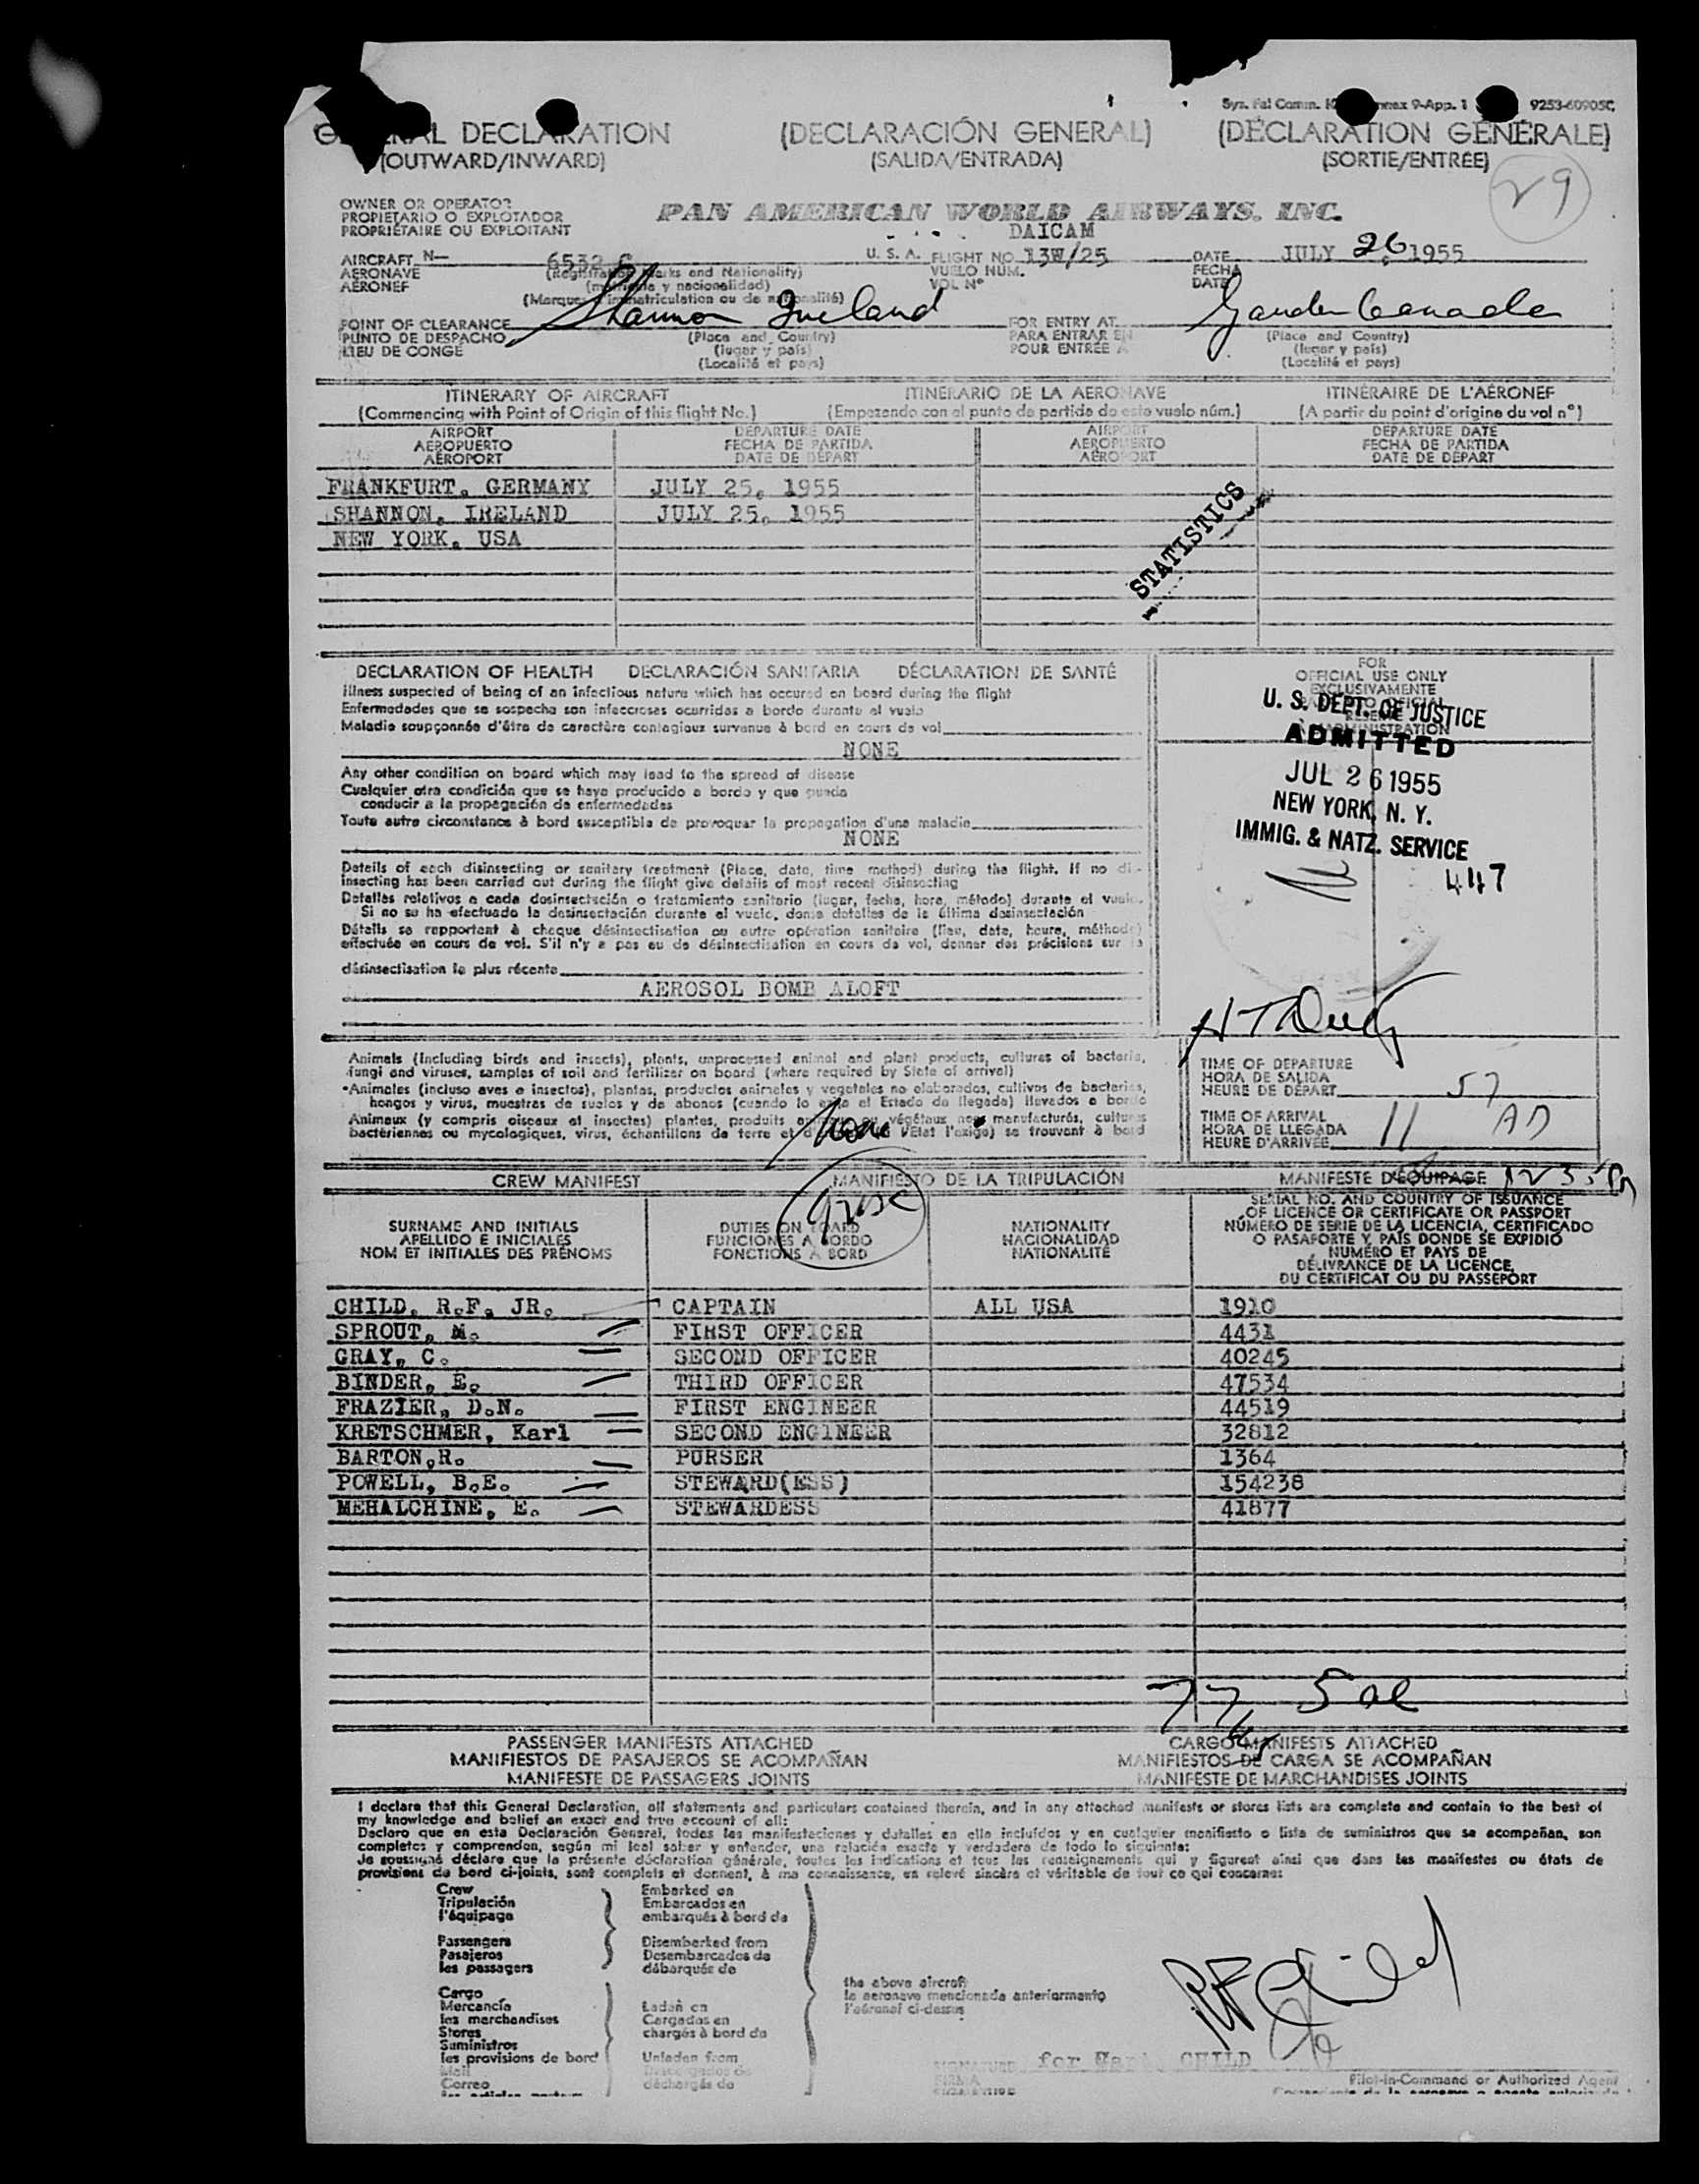 Annex 9-App. 1 9253-60905C
GENERAL DECLARATION (DECLARACIÓN GENERAL) (DÉCLARATION GÉNÉRALE)
(OUTWARD/INWARD) (SALIDA/ENTRADA) (SORTIE/ENTRÉE)
29
OWNER OR OPERATOR
PROPIETARIO O EXPLOTADOR
PROPRIÉTAIRE OU EXPLOITANT
PAN AMERICAN WORLD AIRWAYS, INC.
DAICAM
AIRCRAFT N— 6532 C U. S. A. FLIGHT NO. 13W/25 DATE JULY 26, 1955
AERONAVE (Registration Marks and Nationality) VUELO NÚM. FECHA
AÉRONEF (matrícula y nacionalidad) VOL Nº DATE
(Marques d'immatriculation ou de nationalité)
POINT OF CLEARANCE Shannon Ireland FOR ENTRY AT Gander Canada
PUNTO DE DESPACHO (Place and Country) PARA ENTRAR EN (Place and Country)
LIEU DE CONGÉ (lugar y país) POUR ENTRÉE A (lugar y país)
(Localité et pays) (Localité et pays)
ITINERARY OF AIRCRAFT ITINERARIO DE LA AERONAVE ITINÉRAIRE DE L'AÉRONEF
(Commencing with Point of Origin of this flight No.) (Empezando con el punto de partida de este vuelo núm.) (A partir du point d'origine du vol nº)
AIRPORT DEPARTURE DATE AIRPORT DEPARTURE DATE
AEROPUERTO FECHA DE PARTIDA AEROPUERTO FECHA DE PARTIDA
AÉROPORT DATE DE DÉPART AÉROPORT DATE DE DÉPART
FRANKFURT, GERMANY JULY 25, 1955
SHANNON, IRELAND JULY 25, 1955
NEW YORK, USA
STATISTICS
DECLARATION OF HEALTH DECLARACIÓN SANITARIA DÉCLARATION DE SANTÉ
Illness suspected of being of an infectious nature which has occured on board during the flight
Enfermedades que se sospecha son infecciosas ocurridas a bordo durante el vuelo
Maladie soupçonnée d'être de caractère contagieux survenue à bord en cours de vol
NONE
Any other condition on board which may lead to the spread of disease
Cualquier otra condición que se haya producido a bordo y que pueda
conducir a la propagación de enfermedades
Toute autre circonstance à bord susceptible de provoquer la propagation d'une maladie
NONE
Details of each disinsecting or sanitary treatment (Place, date, time method) during the flight. If no di-
insecting has been carried out during the flight give details of most recent disinsecting
Detalles relativos a cada desinsectación o tratamiento sanitario (lugar, fecha, hora, método) durante el vuelo.
Si no se ha efectuado la desinsectación durante el vuelo, dense detalles de la última desinsectación
Détails se rapportant à cheque désinsectisation ou autre opération sanitaire (lieu, date, heure, méthode)
effectuée en cours de vol. S'il n'y a pas eu de désinsectisation en cours de vol, donner des précisions sur la
désinsectisation la plus récente
AEROSOL BOMB ALOFT
FOR
OFFICIAL USE ONLY
EXCLUSIVAMENTE
U. S. DEPT. OF JUSTICE
ADMITTED
JUL 26 1955
NEW YORK, N. Y.
IMMIG. & NATZ. SERVICE
447
Animals (Including birds and insects), plants, unprocessed animal and plant products, cultures of bacteria,
fungi and viruses, samples of soil and fertilizer on board (where required by State of arrival)
Animales (incluso aves e insectos), plantas, productos animales y vegetales no elaborados, cultivos de bacterias,
hongos y virus, muestras de suelos y de abonos (cuando lo exija el Estado de llegada) llevados a bordo
Animaux (y compris oiseaux et insectes) plantes, produits animaux ou végétaux non manufacturés, cultures
bactériennes ou mycologiques, virus, échantillons de terre et d' l'Etat l'exige) se trouvant à bord
None
TIME OF DEPARTURE
HORA DE SALIDA
HEURE DE DÉPART 57
TIME OF ARRIVAL
HORA DE LLEGADA
HEURE D'ARRIVÉE 11
CREW MANIFEST MANIFIESTO DE LA TRIPULACIÓN MANIFESTE D'ÉQUIPAGE
SURNAME AND INITIALS
APELLIDO E INICIALES
NOM ET INITIALES DES PRÉNOMS
DUTIES ON BOARD
FUNCIONES A BORDO
FONCTIONS A BORD
NATIONALITY
NACIONALIDAD
NATIONALITÉ
SERIAL NO. AND COUNTRY OF ISSUANCE
OF LICENCE OR CERTIFICATE OR PASSPORT
NÚMERO DE SERIE DE LA LICENCIA, CERTIFICADO
O PASAPORTE Y PAÍS DONDE SE EXPIDIÓ
NUMÉRO ET PAYS DE
DÉLIVRANCE DE LA LICENCE,
DU CERTIFICAT OU DU PASSEPORT
CHILD, R.F. JR. CAPTAIN ALL USA 1910
SPROUT, M. FIRST OFFICER 4431
GRAY, C. SECOND OFFICER 40245
BINDER, E. THIRD OFFICER 47534
FRAZIER, D.N. FIRST ENGINEER 44519
KRETSCHMER, Karl SECOND ENGINEER 32812
BARTON,R. PURSER 1364
POWELL, B.E. STEWARD(ESS) 154238
MEHALCHINE, E. STEWARDESS 41877
77
PASSENGER MANIFESTS ATTACHED CARGO MANIFESTS ATTACHED
MANIFIESTOS DE PASAJEROS SE ACOMPAÑAN MANIFIESTOS DE CARGA SE ACOMPAÑAN
MANIFESTE DE PASSAGERS JOINTS MANIFESTE DE MARCHANDISES JOINTS
I declare that this General Declaration, all statements and particulars contained therein, and in any attached manifests or stores lists are complete and contain to the best of
my knowledge and belief an exact and true account of all:
Declaro que en esta Declaración General, todas las manifestaciones y detalles en ella incluídos y en cualquier manifiesto o lista de suministros que se acompañan, son
completos y comprenden, según mi leal saber y entender, una relación exacta y verdadera de todo lo siguiente:
Je soussigné déclare que la présente déclaration générale, toutes les indications et tous les renseignements qui y figurent ainsi que dans les manifestes ou états de
provisions de bord ci-joints, sont complets et donnent, à ma connaissance, un relevé sincère et véritable de tout ce qui concerne:
Crew Embarked on
Tripulación Embarcados en
l'équipage embarqués à bord de
Passengers Disembarked from
Pasajeros Desembarcados de
les passagers débarqués de
the above aircraft
la aeronave mencionada anteriormente
l'aéronef ci-dessus
Cargo
Mercancía Laden on
les marchandises Cargados en
Stores chargés à bord de
Suministros
les provisions de bord Unladen from
Mail Descargados de
Correo déchargés de
RF Child
SIGNATURE for Capt. CHILD
FIRMA
Pilot-in-Command or Authorized Agent